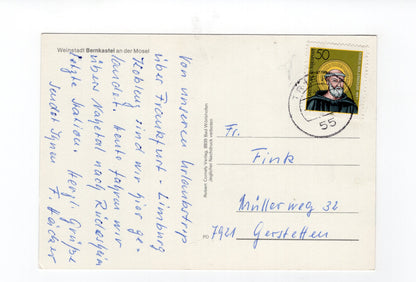 Weinstadt Bernkastel an der Mosel
Von unserem Urlaubstrip
über Frankfurt - Limburg
Koblenz sind wir hier ge-
landet. Heute fahren wir
übers Nahetal nach Rüdesheim
letzte Station. Herzl. Grüße
sendet Ihnen F. Häcker
Robert Combé, Verlag, 8939 Bad Wörishofen
Jeglicher Nachdruck verboten
PD
50
55
Fr.
Fink
Müllerweg 32
7921 Gerstetten